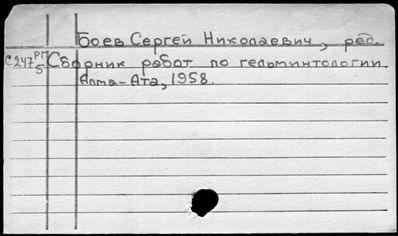 Боев Сергей Николаевич, ред.
С247 РГ/5 Сборник работ по гельминтологии.
Алма-Ата, 1958.